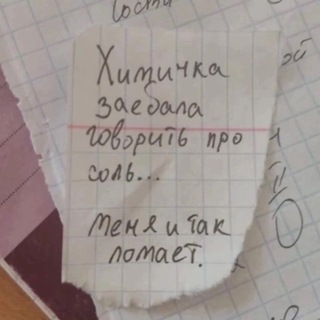 Химичка
заебала
говорить про
соль...
Меня и так
ломает.